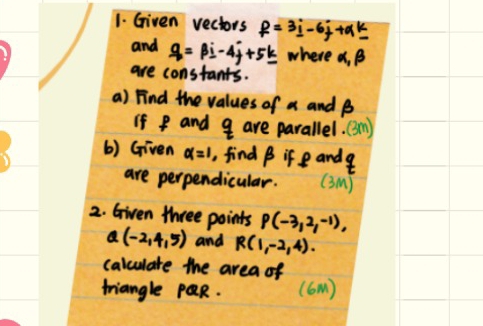 1. Given vectors p = 3i - 6j + αk
and q = βi - 4j + 5k where α, β
are constants.
a) Find the values of α and β
if p and q are parallel. (3m)
b) Given α=1, find β if p and q
are perpendicular. (3M)
2. Given three points P(-3,2,-1),
Q(-2,4,5) and R(1,-2,4).
calculate the area of
triangle PQR. (6M)